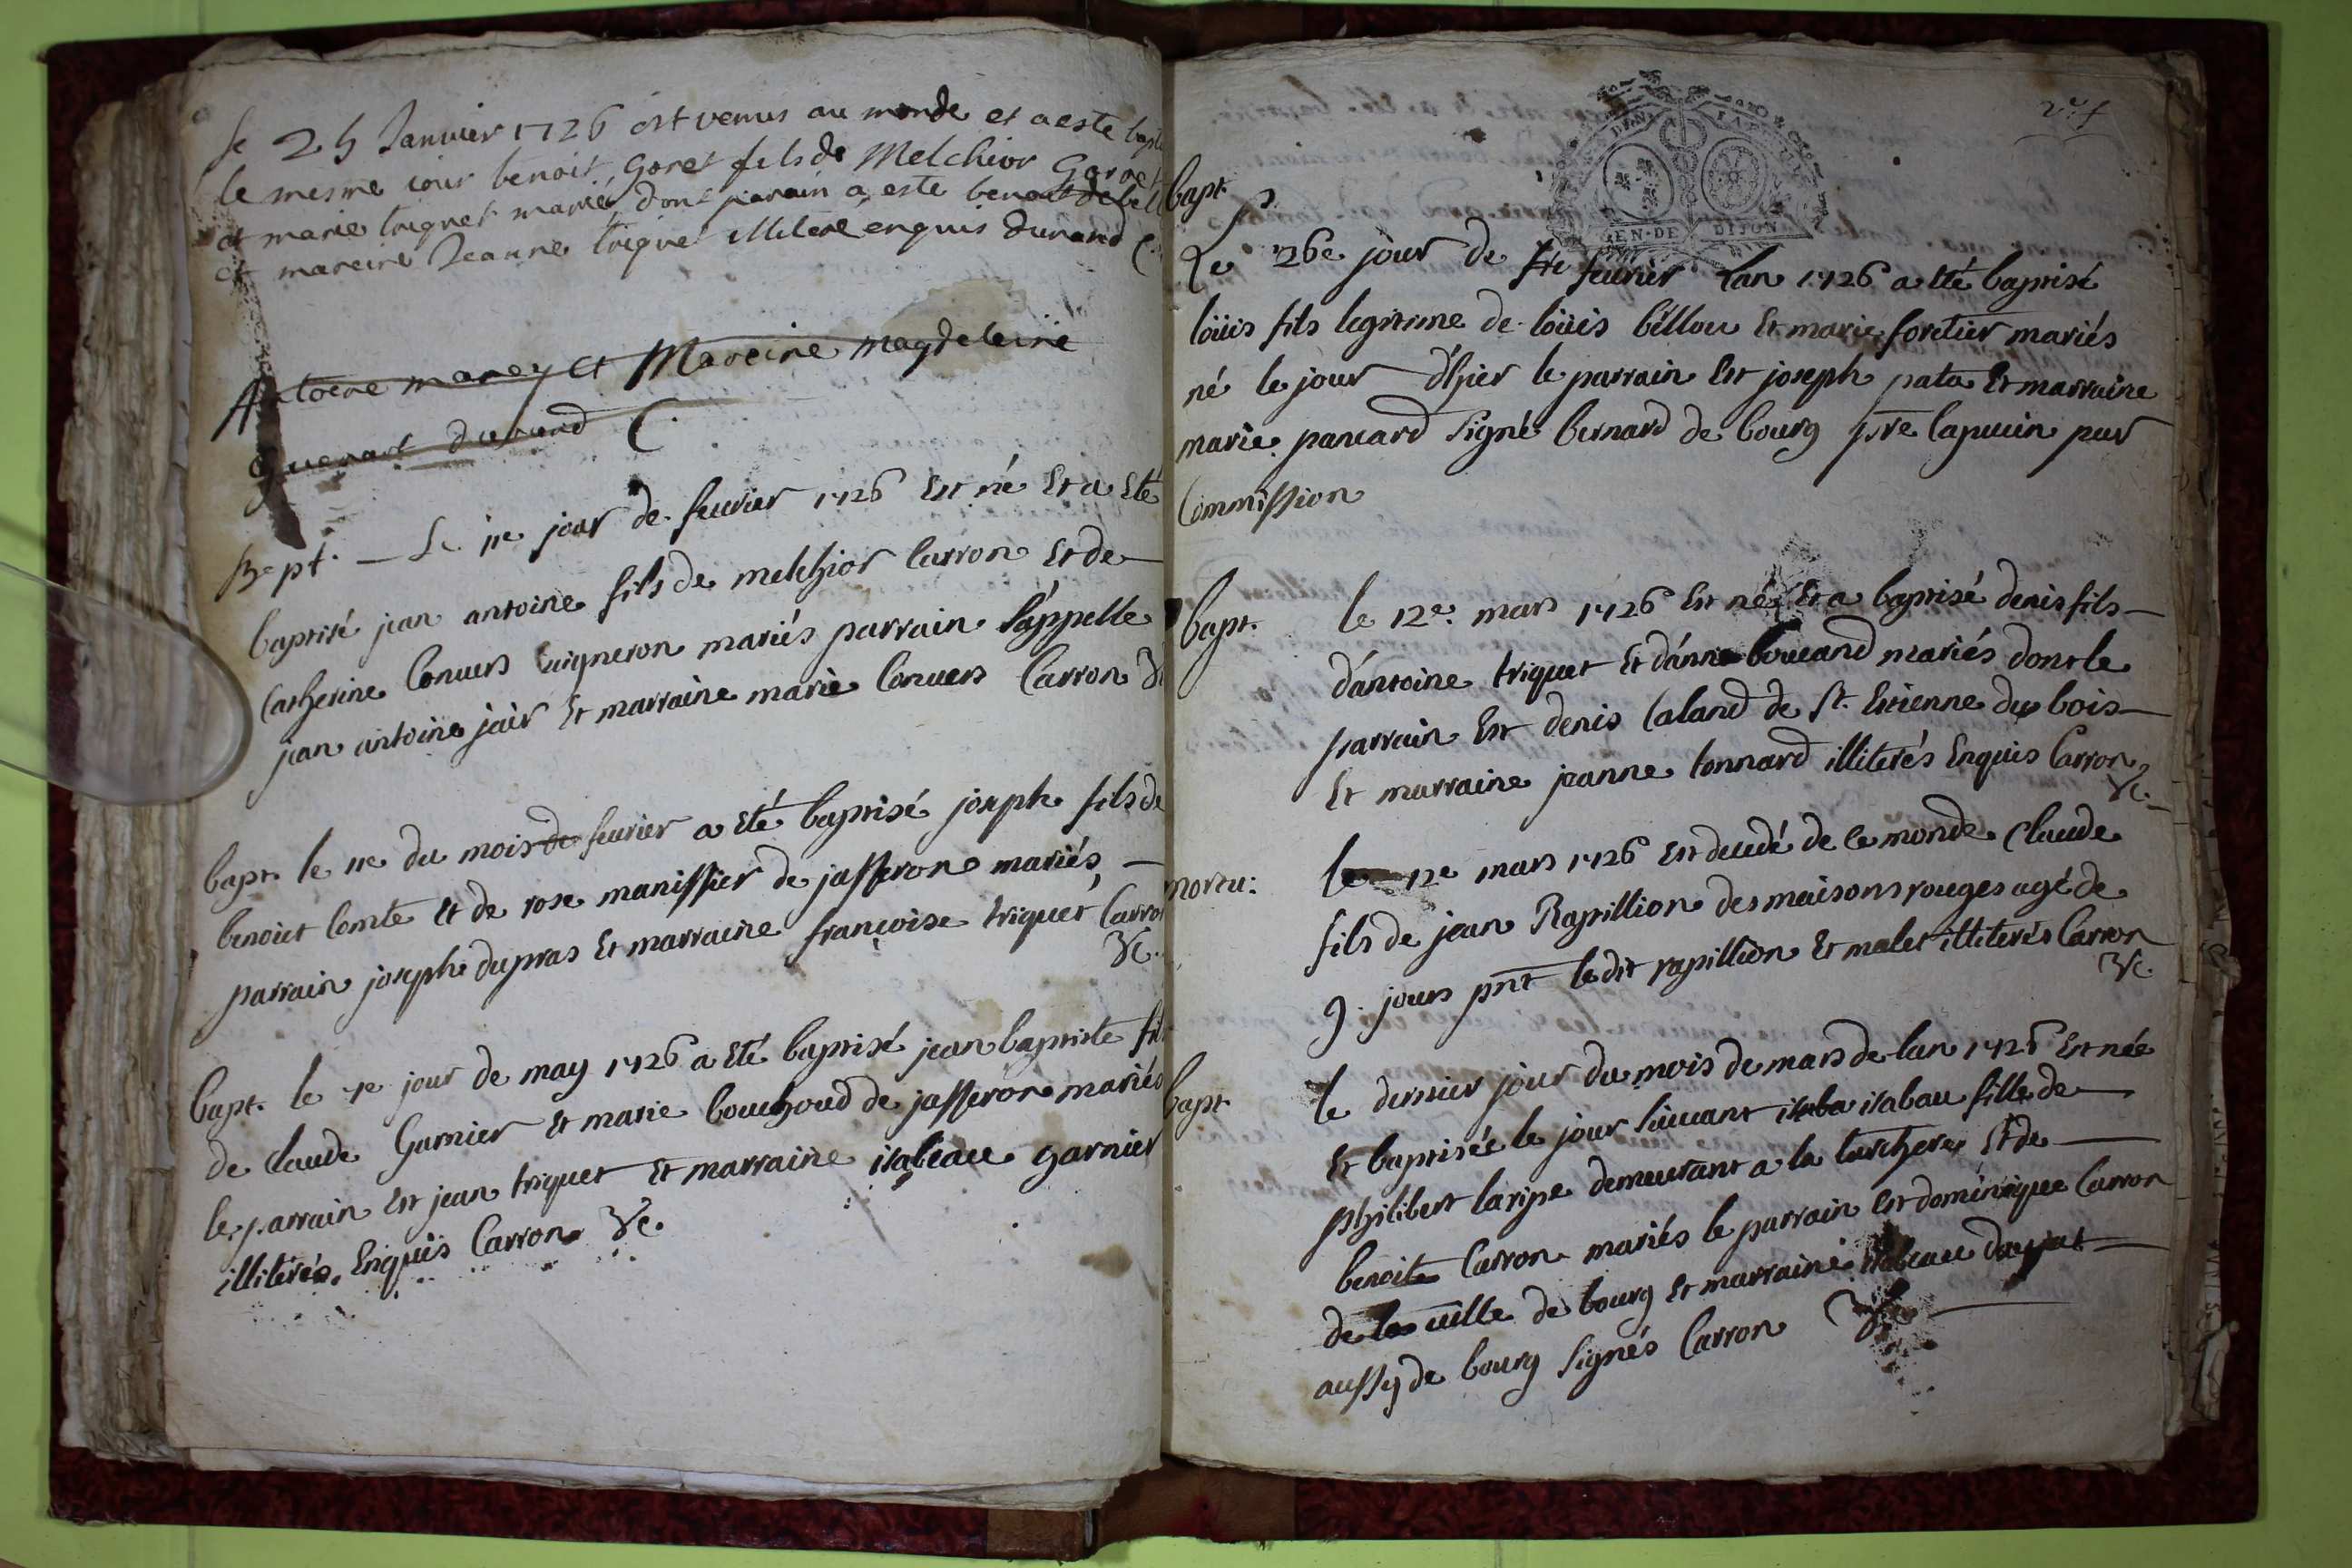 le 25 Janvier 1726 est venus au monde et a este bapt
le mesme iour benoit Goret fils de Melchior Goret
et marie triquet mariés dont parain a este benoit
et mareine Jeanne triquet illiteré enquis Durand C
Antoine marey et Mareine Magdeleine
guenart durand C.
Bapt. — Le 11e jour de feurier 1726 Est né Et a Eté
baptisé jean antoine fils de melchior Carron Et de —
Catherine Conuers uigneron mariés parrain s'appelle
jean antoine jair Et marraine marie Conuers Carron Vc
bapt. le 11e du mois de feurier a Eté baptisé joseph fils de
benoict Comte Et de rose manissier de jasseron mariés —
parrain joseph dupras Et marraine françoise triquet Carron
Vc.
bapt. le 1e jour de may 1726 a Eté baptisé jean baptiste fils
de claude Garnier Et marie bouchoud de jasseron mariés
le parrain Est jean triquet Et marraine isabeau garnier
illiterés Enquis Carron Vc.
2e f
DIJON
bapt.
Le 26e jour de feurier lan 1726 a Eté baptisé
loüis fils legitime de loüis béllou Et marie foretier mariés
né le jour d'hier le parrain Est joseph pata Et marraine
marie pancard signé bernard de bourg pre Capucin par
Commission
bapt. le 12e mars 1726 Est né Et a baptisé denis fils —
d'antoine triquet Et d'anne bouuand mariés dont le
parrain Est denis Caland de St. Etienne du bois —
Et marraine jeanne tonnard illiterés Enquis Carron
Vc.
mortu: le 12e mars 1726 Est decedé de ce monde Claude
fils de jean Rapillion des maisons rouges agé de
9 jours pnt ledit rapillion Et malet illiterés Carron
Vc.
bapt. le dernier jour du mois de mars de lan 1726 Est née
Et baptisée le jour suiuant isaba isabau fille de —
philibert laripe demeurant a la Et de —
benoite Carron mariés le parrain Est dominique Carron
de la uille de bourg Et marraine isabeau —
aussy de bourg signés Carron Vc